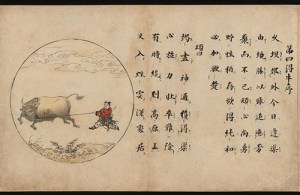 第四得牛序
久埋郊外今日逢渠
由境勝以難追戀芳
叢而不已頑心尚勇
野性猶存欲得純和
必加鞭楚
頌
竭盡神通獲得渠
心強力壯卒難除
有時纔到高原上
又入煙雲深處居